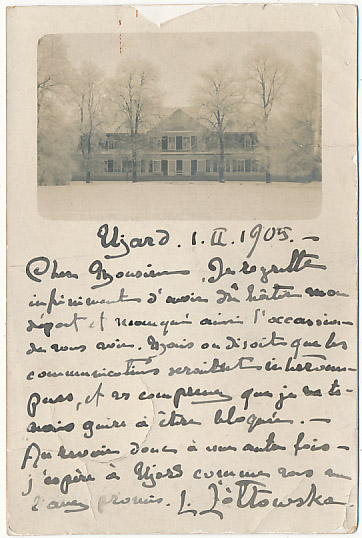 Ujazd. 1. II. 1905. —
Cher Monsieur, Je regrette
infiniment d'avoir dû hâter mon
départ et manqué ainsi l'occasion
de vous voir. Mais on disait que les
communications seraient interrom-
pues, et vs comprenez que je ne te-
nais guère à être bloquée. —
Au revoir donc à une autre fois —
j'espère à Ujazd comme vous me
l'avez promis. L. Żółtowska